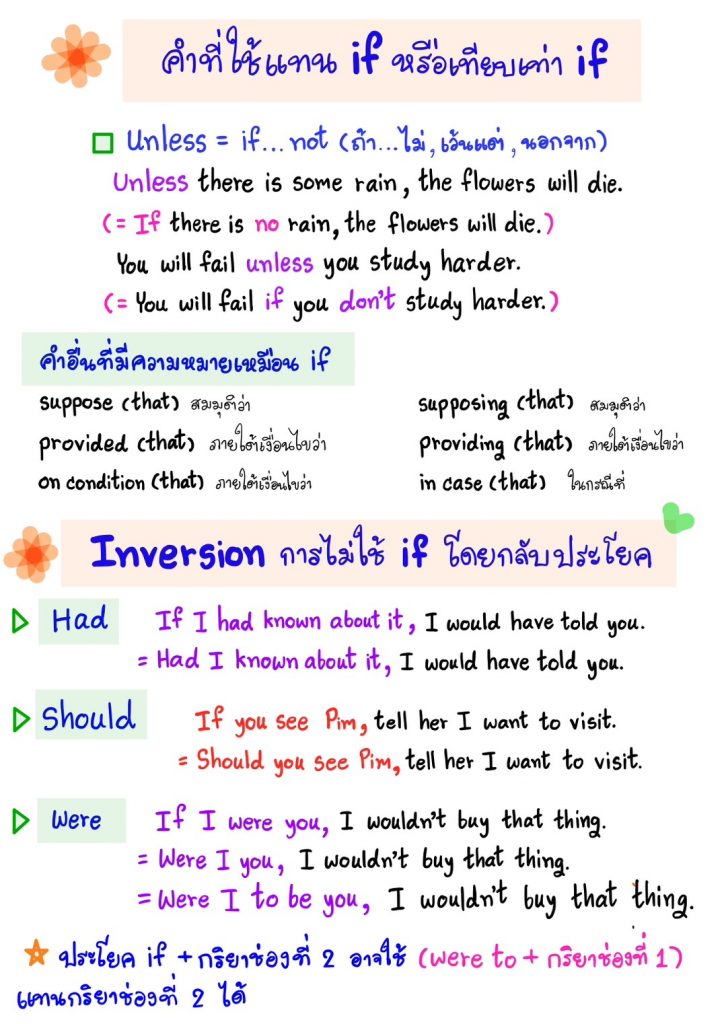 คำที่ใช้แทน if หรือเทียบเท่า if
Unless = if...not (ถ้า...ไม่, เว้นแต่, นอกจาก)
Unless there is some rain, the flowers will die.
(= If there is no rain, the flowers will die.)
You will fail unless you study harder.
(= You will fail if you don't study harder.)
คำอื่นที่มีความหมายเหมือน if
suppose (that) สมมุติว่า
supposing (that) สมมุติว่า
provided (that) ภายใต้เงื่อนไขว่า
providing (that) ภายใต้เงื่อนไขว่า
on condition (that) ภายใต้เงื่อนไขว่า
in case (that) ในกรณีที่
Inversion การไม่ใช้ if โดยกลับประโยค
Had If I had known about it, I would have told you.
= Had I known about it, I would have told you.
Should If you see Pim, tell her I want to visit.
= Should you see Pim, tell her I want to visit.
Were If I were you, I wouldn't buy that thing.
= Were I you, I wouldn't buy that thing.
= Were I to be you, I wouldn't buy that thing.
ประโยค if + กริยาช่องที่ 2 อาจใช้ (were to + กริยาช่องที่ 1)
แทนกริยาช่องที่ 2 ได้